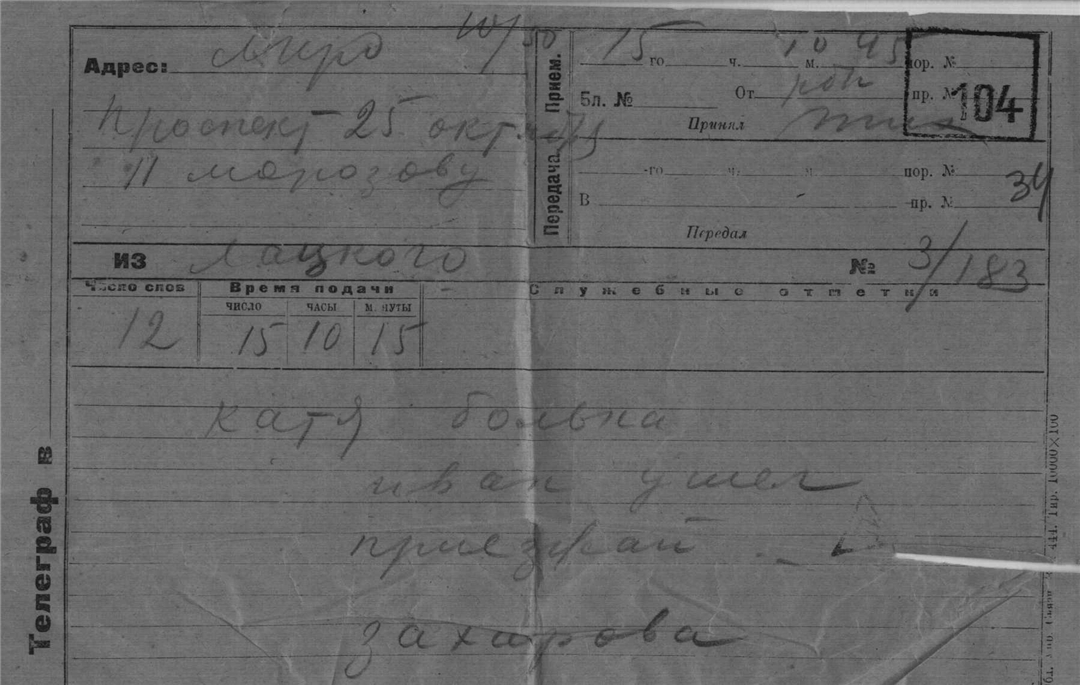 10/50
Адрес: Лиро
Проспект 25 октября
11 морозову
Прием.
15 го ч. 10 м. 45 пор. №
Бл. № От пр. № 104
Принял
Передача
-го ч. м пор. №
В пр. № 34
Передал
ИЗ Лацкого № 3/183
Число слов Время подачи Служебные отметки
ЧИСЛО ЧАСЫ МИНУТЫ
12 15 10 15
катя больна
иван ушел
приезжай
захарова
Телеграф в
444. Тир. 10000×100